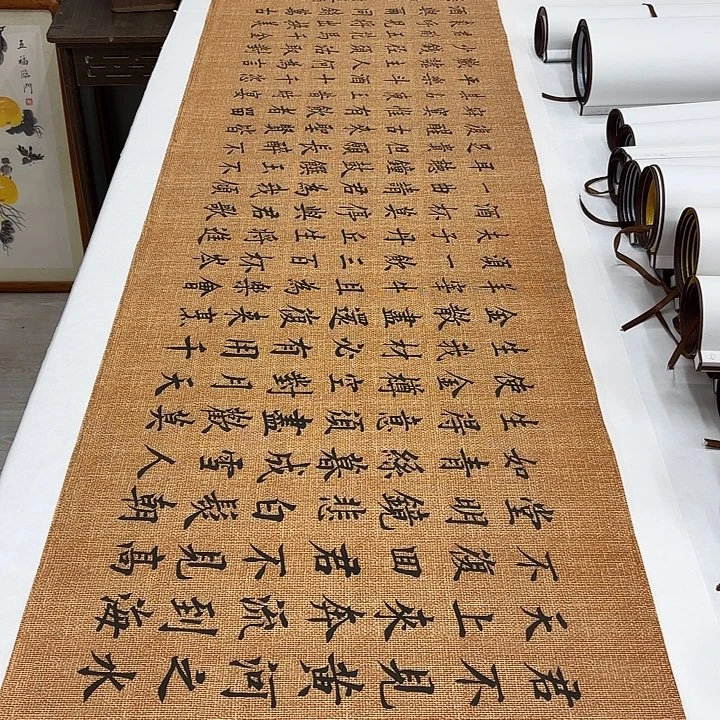 君不見黃河之水
天上來奔流到海
不復回君不見高
堂明鏡悲白髮朝
如青絲暮成雪人
生得意須盡歡莫
使金樽空對月天
生我材必有用千
金散盡還復來烹
羊宰牛且為樂會
須一飲三百杯岑
夫子丹丘生將進
酒杯莫停與君歌
一曲請君為我傾
耳聽鐘鼓饌玉不
足貴但願長醉不
復醒古來聖賢皆
寂寞惟有飲者留
其名陳王昔時宴
平樂斗酒十千恣
五福臨門